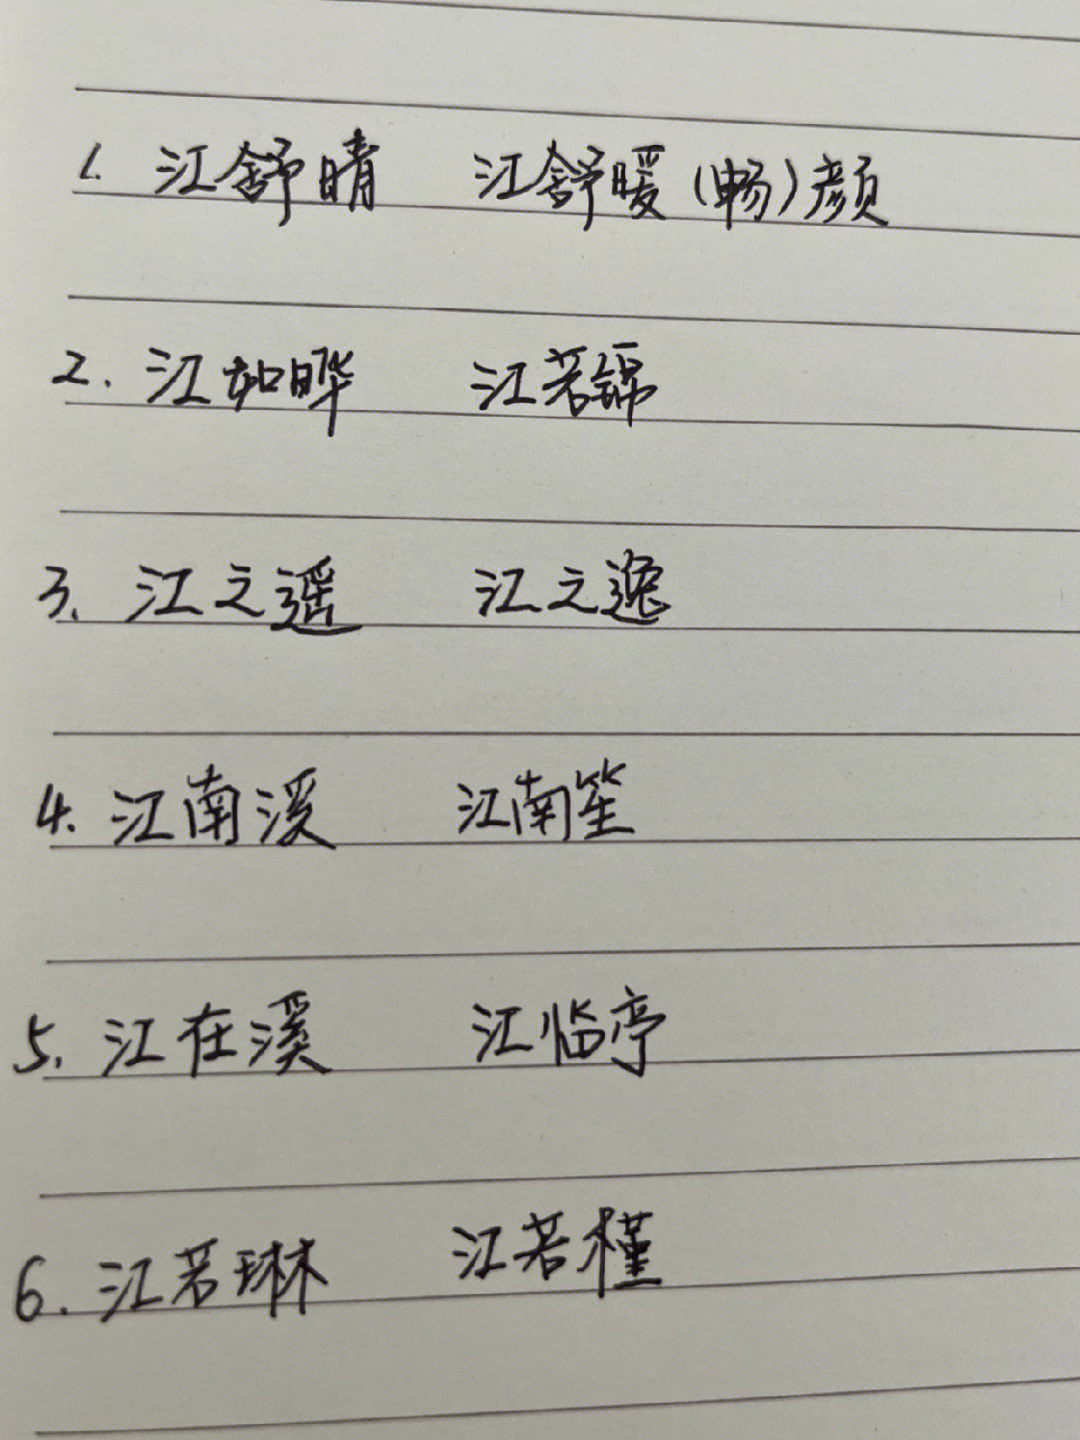 1. 江舒晴 江舒暖(畅)颜
2. 江如晔 江若锦
3. 江之遥 江之逸
4. 江南溪 江南笙
5. 江在溪 江临亭
6. 江若琳 江若槿